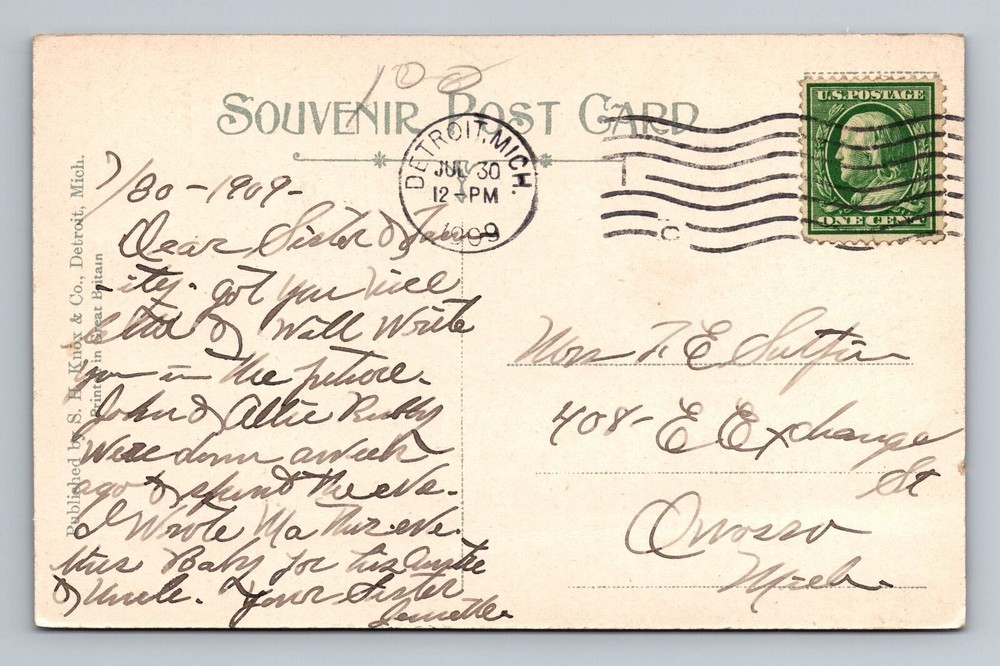 100
SOUVENIR POST CARD
U.S. POSTAGE
ONE CENT
DETROIT, MICH.
JUL 30
12-PM
1909
T
C
Published by S. H. Knox & Co., Detroit, Mich.
Printed in Great Britain
7/30-1909-
Dear Sister & Fam
ily. got you nice
& Will Write
you in the
John & Allie
Were down a week
ago & spent the eve.
I Wrote Ma this eve.
Kiss Baby for his Auntie
& Uncle. Your Sister
Mrs F. E. Sutfin
408- E Exchange
St
Owosso
Mich.